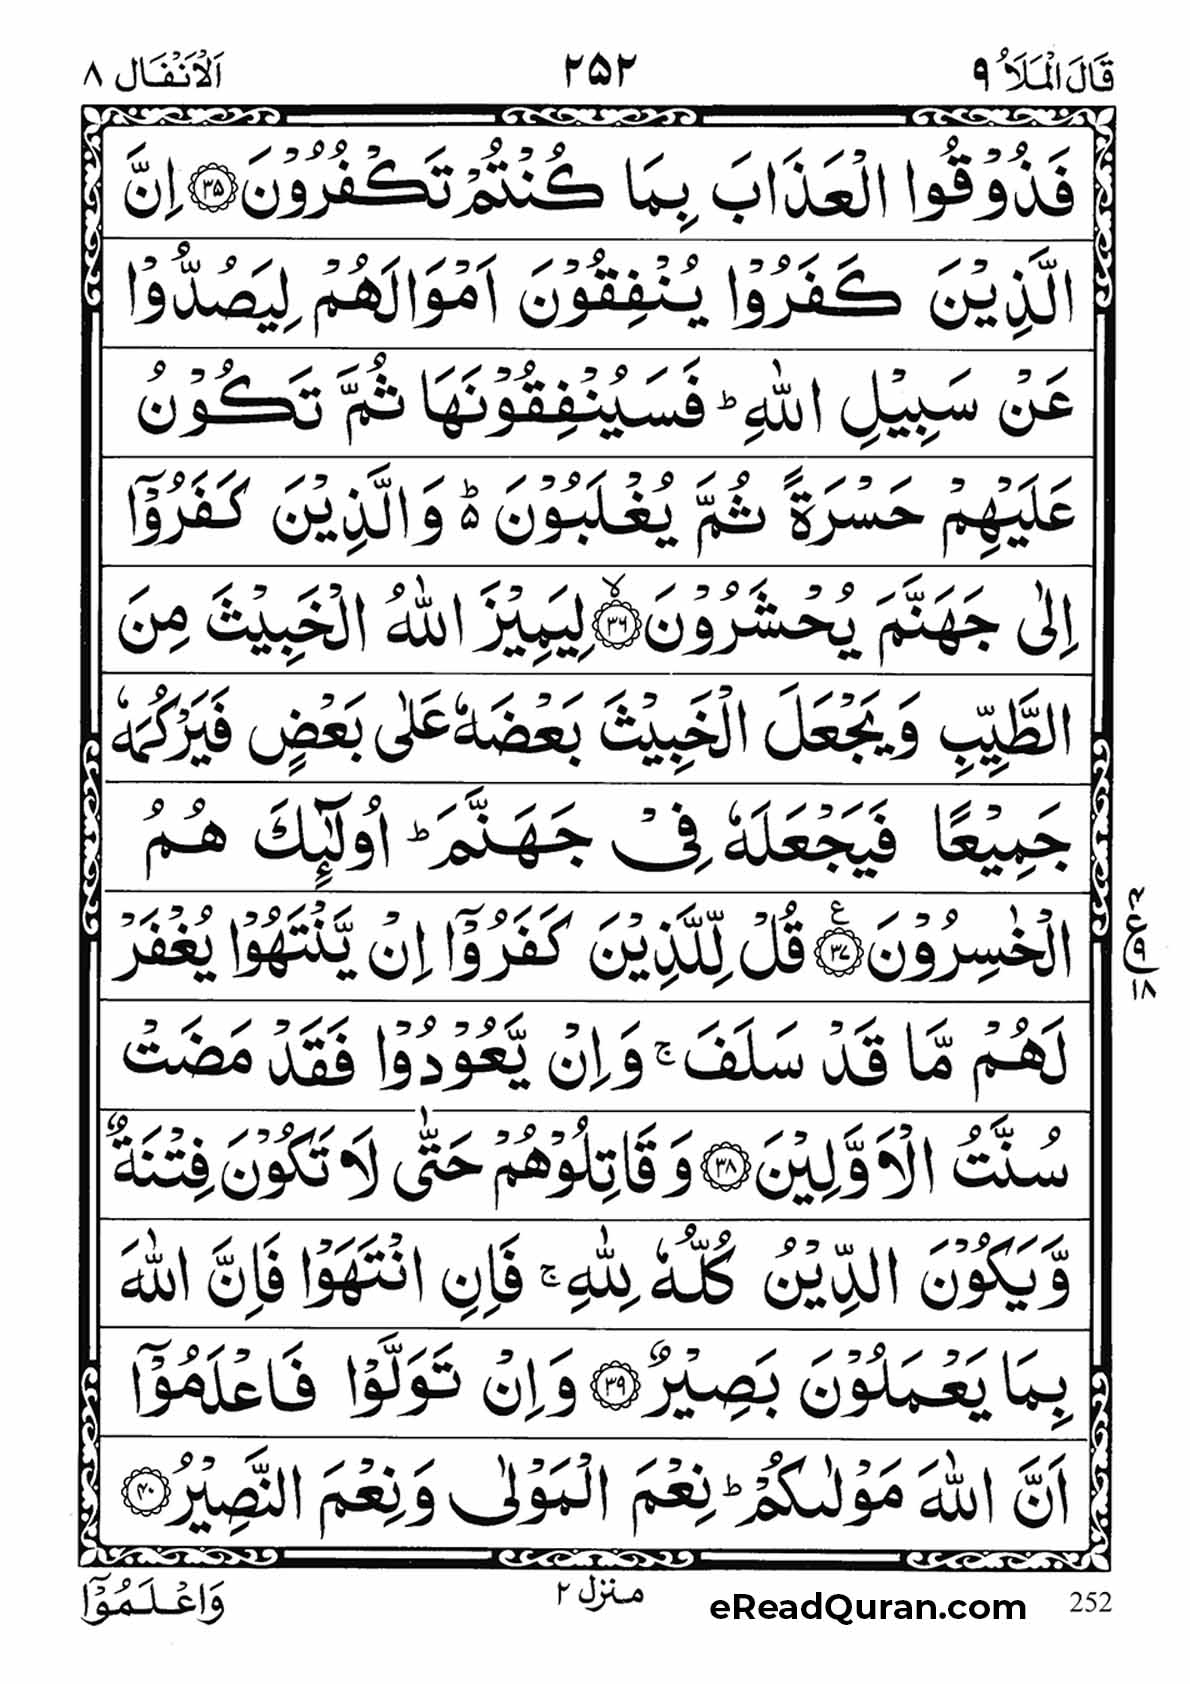 قَالَ الْمَلَاُ ۹ ۲۵۲ اَلْاَنْفَال ۸
فَذُوْقُوا الْعَذَابَ بِمَا كُنْتُمْ تَكْفُرُوْنَ ۳۵ اِنَّ
الَّذِيْنَ كَفَرُوْا يُنْفِقُوْنَ اَمْوَالَهُمْ لِيَصُدُّوْا
عَنْ سَبِيْلِ اللّٰهِ ؕ فَسَيُنْفِقُوْنَهَا ثُمَّ تَكُوْنُ
عَلَيْهِمْ حَسْرَةً ثُمَّ يُغْلَبُوْنَ ۬ؕ وَالَّذِيْنَ كَفَرُوْۤا
اِلٰى جَهَنَّمَ يُحْشَرُوْنَ ۙ۳۶ لِيَمِيْزَ اللّٰهُ الْخَبِيْثَ مِنَ
الطَّيِّبِ وَيَجْعَلَ الْخَبِيْثَ بَعْضَهٗ عَلٰى بَعْضٍ فَيَرْكُمَهٗ
جَمِيْعًا فَيَجْعَلَهٗ فِىْ جَهَنَّمَ ؕ اُولٰٓئِكَ هُمُ
الْخٰسِرُوْنَ ۳۷ ع قُلْ لِّلَّذِيْنَ كَفَرُوْۤا اِنْ يَّنْتَهُوْا يُغْفَرْ
لَهُمْ مَّا قَدْ سَلَفَ ۚ وَاِنْ يَّعُوْدُوْا فَقَدْ مَضَتْ
سُنَّتُ الْاَوَّلِيْنَ ۳۸ وَقَاتِلُوْهُمْ حَتّٰى لَا تَكُوْنَ فِتْنَةٌ
وَّيَكُوْنَ الدِّيْنُ كُلُّهٗ لِلّٰهِ ۚ فَاِنِ انْتَهَوْا فَاِنَّ اللّٰهَ
بِمَا يَعْمَلُوْنَ بَصِيْرٌ ۳۹ وَاِنْ تَوَلَّوْا فَاعْلَمُوْۤا
اَنَّ اللّٰهَ مَوْلٰٮكُمْ ؕ نِعْمَ الْمَوْلٰى وَنِعْمَ النَّصِيْرُ ۴۰
ع ۹ ۱۸
252 eReadQuran.com منزل ۲ وَاعْلَمُوْۤا